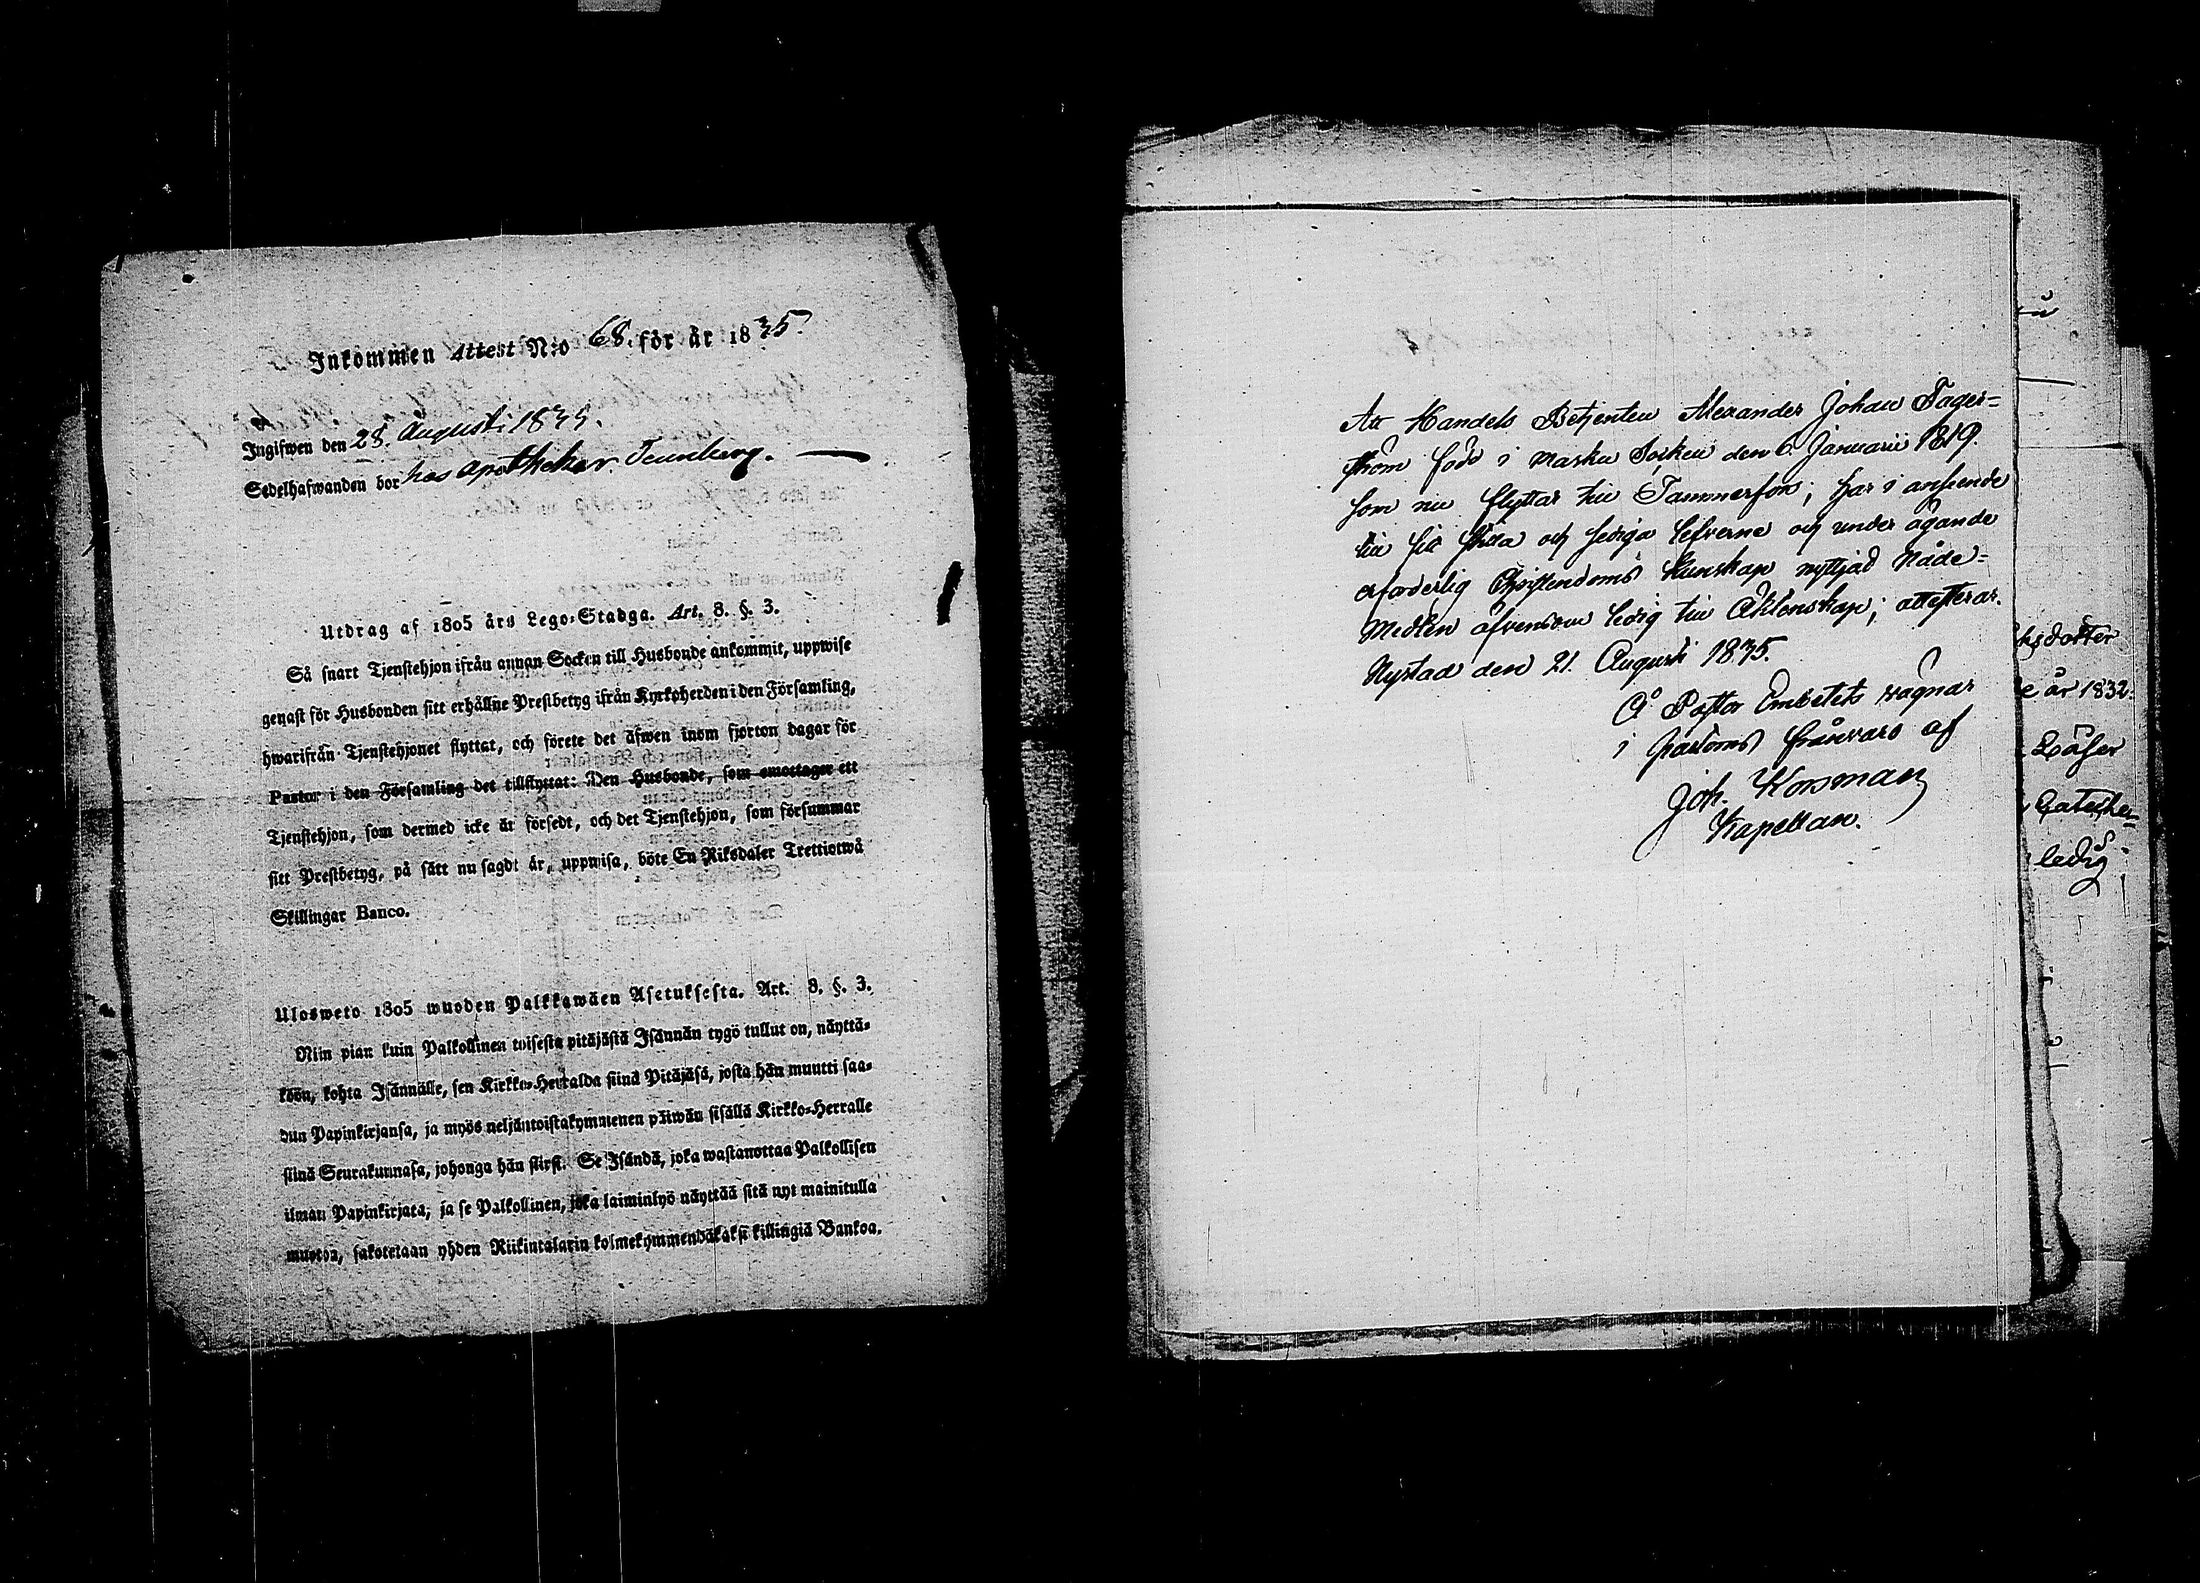 Inkommen Attest N:o 68. för år 1835.
Ingifwen den 28. Augusti 1835.
Sedelhafwanden bor hos Apothekar Tennberg.
Utdrag af 1805 års Lego-Stadga. Art. 8. §. 3.
Så snart Tjenstehjon ifrån annan Socken till Husbonde ankommit, uppwise
genast för Husbonden sitt erhållne Prestbetyg ifrån Kyrkoherden i den Församling,
hwarifrån Tjenstehjonet flyttat, och förete det äfwen inom fjorton dagar för
Pastor i den Församling det tillflyttat: Den Husbonde, som emottager ett
Tjenstehjon, som dermed icke är försedt, och det Tjenstehjon, som försummar
sitt Prestbetyg, på sätt nu sagdt är, uppwisa, böte En Riksdaler Trettiotwå
Skillingar Banco.
Ulosweto 1805 wuoden Palkkawäen Asetuksesta. Art. 8. §. 3.
Niin pian kuin Palkollinen toisesta pitäjästä Isännän tygö tullut on, näyttä-
köön, kohta Isännälle, sen Kirkko-Herralda siinä Pitäjäsä, josta hän muutti saa-
dun Papinkirjansa, ja myös neljäntoistakymmenen päiwän sisällä Kirkko-Herralle
siinä Seurakunnasa, johonga hän siirsi. Se Isändä, joka wastanottaa Palkollisen
ilman Papinkirjata, ja se Palkollinen, joka laiminlyö näyttää sitä nyt mainitulla
muoton, sakotetaan yhden Riikintalarin kolmekymmendäkaksi killingiä Bankoa.
Att Handels Betjenten Alexander Johan Fager=
ström född i Masku Socken den 6. Januarii 1819.
som nu flyttar till Tammerfors; har i anseende
till sitt stilla och sediga lefverne och under ägande
erforderlig Christendoms kunskap nyttjad Nåde=
Medlen äfvensom ledig till Äktenskap; attesterar.
Nystad den 21. Augusti 1835.
På Pastor Embetets vägnar
i frånvaro af
Joh. Korsman
Kapellan.
sdotter
år 1832.
Läser
Cateche=
ledig